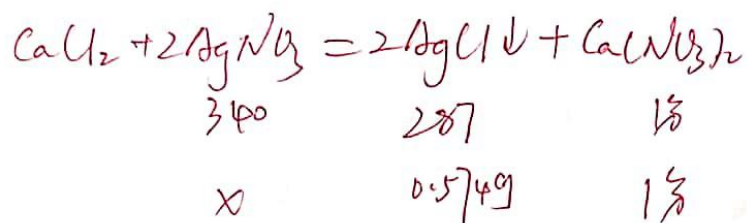 CaCl₂ + 2AgNO₃ = 2AgCl↓ + Ca(NO₃)₂
340 287 1分
x 0.574g 1分